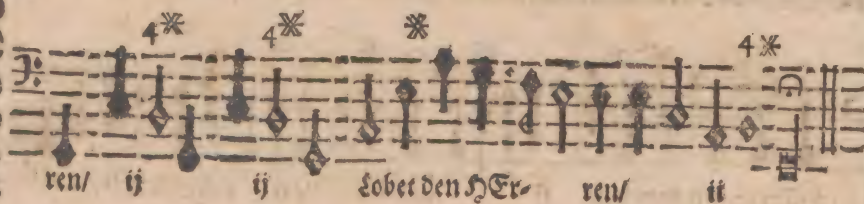 4※ 4※ ※ 4※
ren/ ij ij Lobet den HEr- ren/ ij